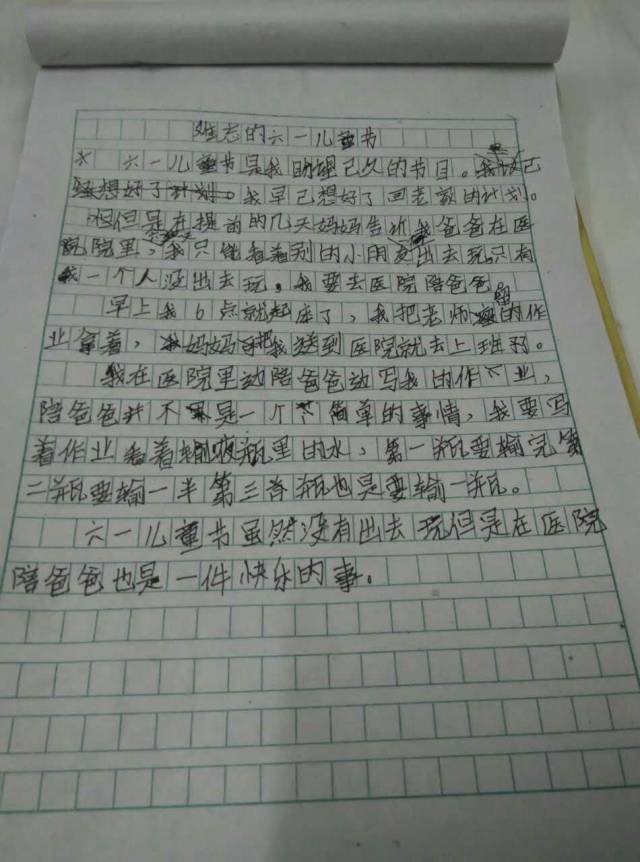 难忘的六一儿童节
六一儿童节是我盼望己久的节目。我
想好了计划。我早己想好了回老家的计划。
但是在提前的几天妈妈告訴我爸爸在医
院里，我只能看着别的小朋友出去玩只有
我一个人没出去玩。我要去医院陪爸爸。
早上我6点就起床了，我把老师留的作
业拿着，妈妈把我送到医院就去上班了。
我在医院里边陪爸爸边写我的作业，
陪爸爸并不是一个简单的事情，我要写
着作业看着输液瓶里的水，第一瓶要输完第
二瓶要输一半第三瓶也是要输一瓶。
六一儿童节虽然没有出去玩但是在医院
陪爸爸也是一件快乐的事。